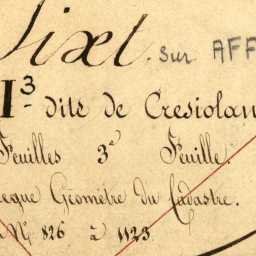 Sixt. sur AFF
I³ dite de Cresiolan
Feuilles 3e Feuille.
eque Géomètre du Cadastre.
Nos 826 à 1123